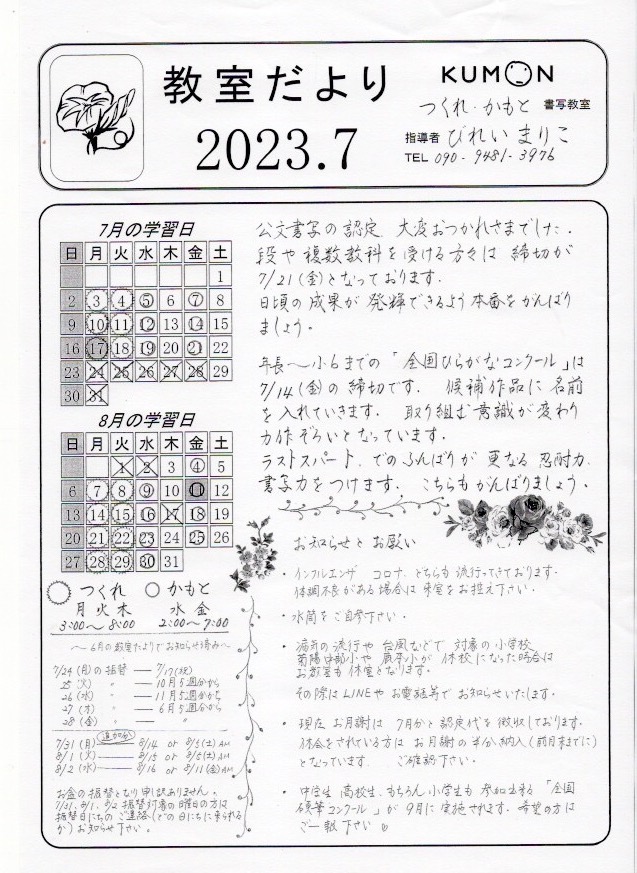 教室だより
2023.7
KUMON
つくれ・かもと 書写教室
指導者 びれい まりこ
TEL 090-9481-3976
7月の学習日
日 月 火 水 木 金 土
1
2 3 4 5 6 7 8
9 10 11 12 13 14 15
16 17 18 19 20 21 22
23 24 25 26 27 28 29
30 31
8月の学習日
日 月 火 水 木 金 土
1 2 3 4 5
6 7 8 9 10 11 12
13 14 15 16 17 18 19
20 21 22 23 24 25 26
27 28 29 30 31
つくれ
月 火 木
3:00〜8:00
かもと
水 金
2:00〜7:00
〜6月の教室だよりでお知らせ済み〜
7/24(月)の振替 ― 7/17(祝)
25(火) 〃 ― 10月5週分から
26(水) 〃 ― 11月5週分から
27(木) 〃 ― 6月5週分から
28(金) 〃 ― 〃
追加分
7/31(月) ― 8/14 or 8/5(土)AM
8/1(火) ― 8/15 or 8/5(土)AM
8/2(水) ― 8/16 or 8/11(金)AM
お盆の振替となり申訳ありません。
7/31、8/1、8/2 振替対象の曜日の方は
振替日にちのご連絡(どの日にちに来られる
か)お知らせ下さい。
公文書写の認定 大変おつかれさまでした.
段や複数教科を受ける方々は 締切が
7/21(金)となっております.
日頃の成果が 発揮できるよう本番をがんばり
ましょう。
年長〜小6までの「全国ひらがなコンクール」は
7/14(金)の締切です. 候補作品に名前
を入れていきます. 取り組む意識が変わり
力作ぞろいとなっています.
ラストスパート.でのふんばりが 更なる 忍耐力.
書写力をつけます. こちらもがんばりましょう.
お知らせと お願い
・インフルエンザ コロナ.どちらも 流行ってきております.
体調不良がある場合は 来室をお控え下さい.
・水筒をご自参下さい.
・病気の流行や 台風などで 対象の小学校
菊陽中部小や 鹿本小が 休校になった時は
お教室も休室となります.
その際はLINEや お電話等で お知らせいたします.
・現在 お月謝は 7月分と認定代を徴収しております.
休会をされている方は お月謝の半分納入(前月末までに)
となっています. ご確認下さい.
・中学生 高校生、もちろん小学生も 参加出来る 「全国
硬筆コンクール」が 9月に実施されます. 希望の方は
ご一報下さい